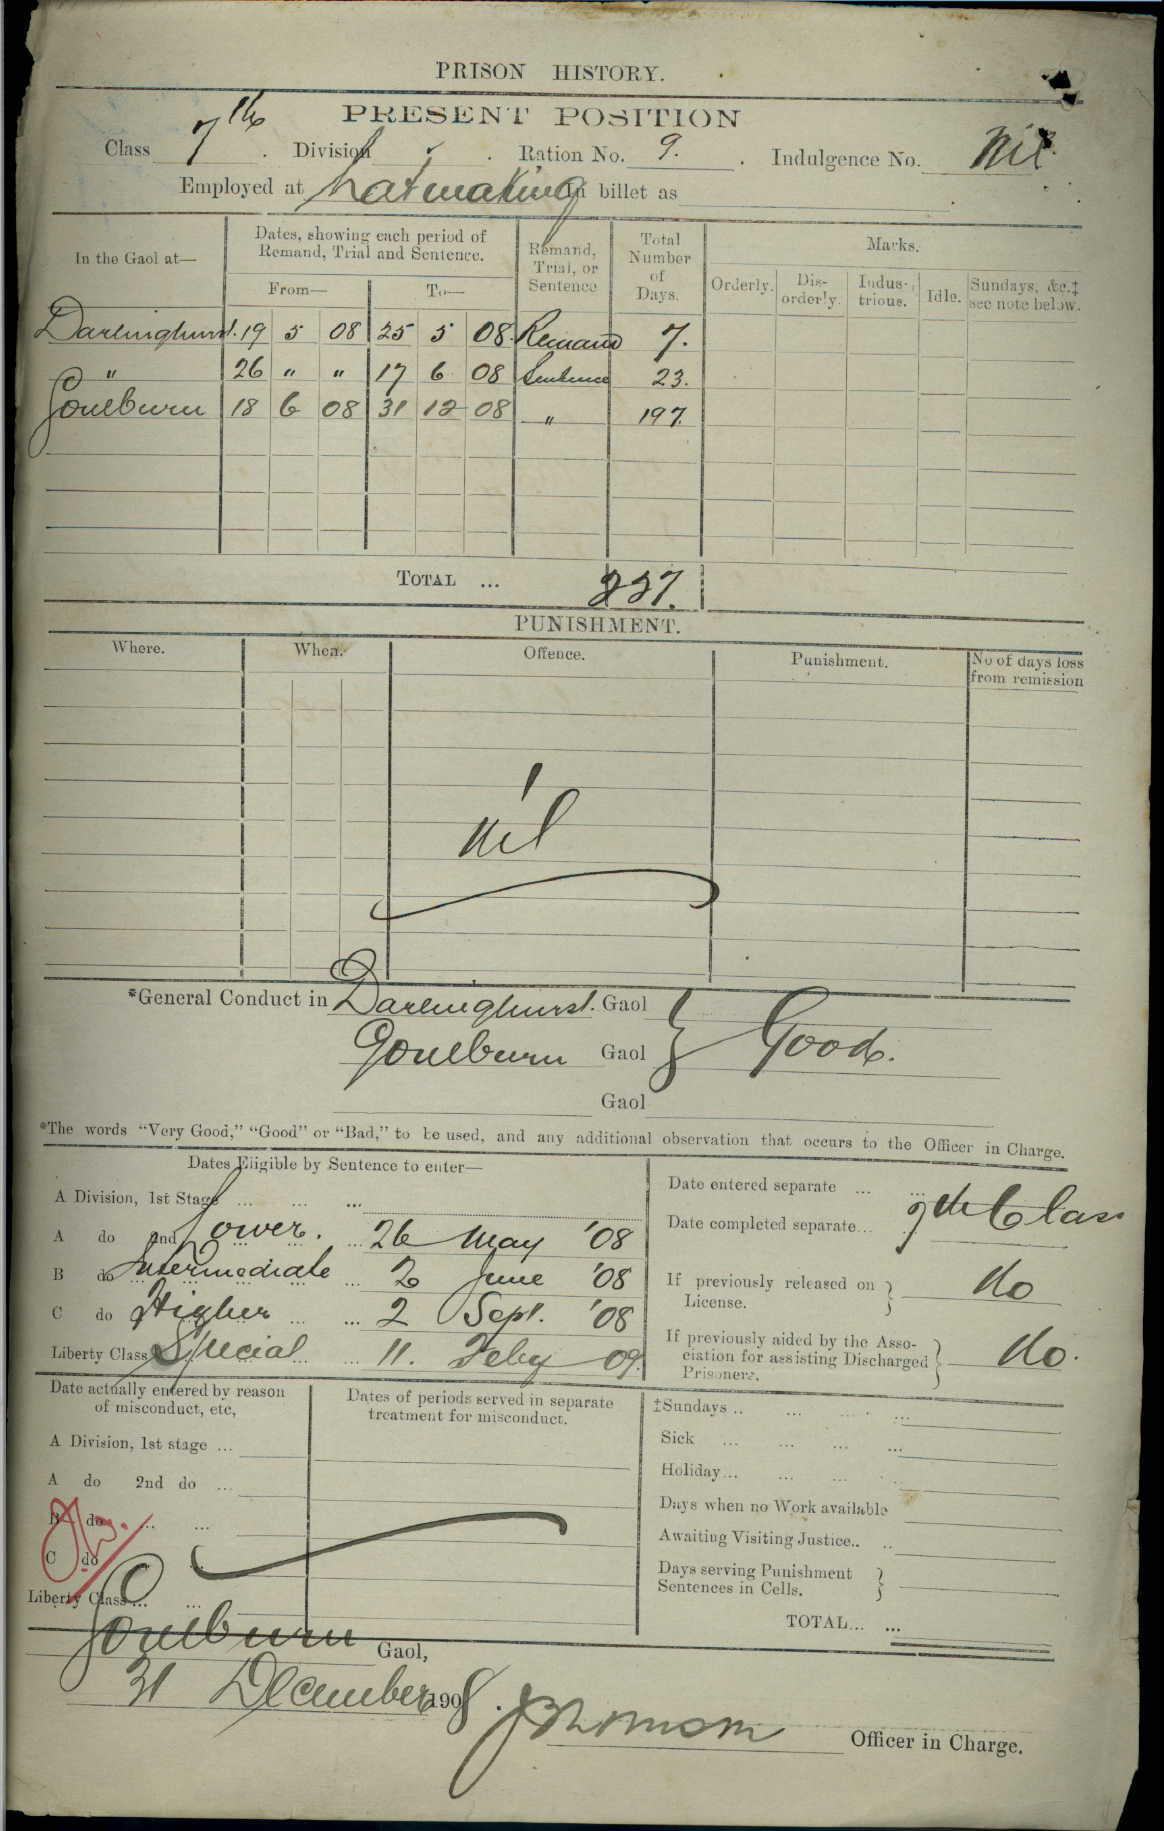 PRISON HISTORY.
PRESENT POSITION
Class 7th. Division . Ration No. 9. Indulgence No. Nil.
Employed at hatmaking In billet as
In the Gaol at— Dates, showing each period of Remand, Trial and Sentence. Remand, Trial, or Sentence Total Number of Days. Marks.
From— To— Orderly. Dis-orderly. Indus-trious. Idle. Sundays, &c.‡ see note below.
Darlinghurst. 19 5 08 25 5 08 Remand 7.
" 26 " " 17 6 08 Sentence 23.
Goulburn 18 6 08 31 12 08 " 197.
TOTAL ... 227.
PUNISHMENT.
Where. When. Offence. Punishment. No of days loss from remission
nil
*General Conduct in Darlinghurst. Gaol
Goulburn Gaol } Good.
Gaol
*The words "Very Good," "Good" or "Bad," to be used, and any additional observation that occurs to the Officer in Charge.
Dates Eligible by Sentence to enter—
A Division, 1st Stage ... ... ...
A do 2nd Lower. ... 26 May '08
B do Intermediate ... 2 June '08
C do Higher ... ... 2 Sept. '08
Liberty Class Special ... ... 11. Feby 09.
Date entered separate ... ... 7th Class
Date completed separate...
If previously released on License. } No
If previously aided by the Asso-
ciation for assisting Discharged
Prisoners. } No.
Date actually entered by reason
of misconduct, etc,
A Division, 1st stage ...
A do 2nd do ...
B do ... ...
C do ...
Liberty Class ... ...
Dates of periods served in separate
treatment for misconduct.
‡Sundays .. ... ... ...
Sick ... ... ... ...
Holiday... ... ... ...
Days when no Work available
Awaiting Visiting Justice.. ..
Days serving Punishment
Sentences in Cells. }
TOTAL... ...
Goulburn Gaol,
31 December 1908.
Officer in Charge.